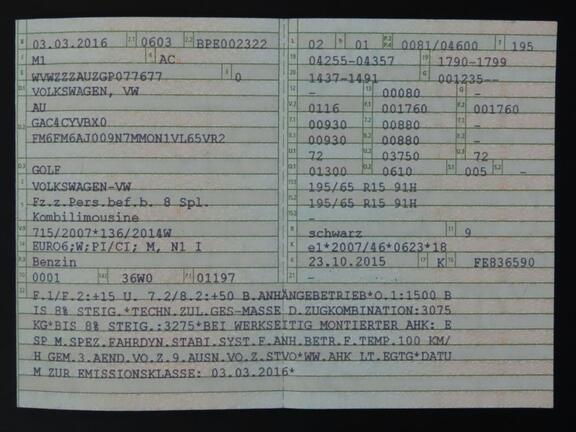 B 03.03.2016 2.1 0603 2.2 BPE002322
J M1 4 AC
E WVWZZZAUZGP077677 3 0
D.1 VOLKSWAGEN, VW
AU
D.2 GAC4CYVBX0
FM6FM6AJ009N7MMON1VL65VR2
D.3 GOLF
2 VOLKSWAGEN-VW
5 Fz.z.Pers.bef.b. 8 Spl.
Kombilimousine
V.9 715/2007*136/2014W
14 EURO6;W;PI/CI; M, N1 I
P.3 Benzin
10 0001 14.1 36W0 P.1 01197
L 02 9 01 P.2 P.4 0081/04600 T 195
18 04255-04357 19 1790-1799
20 1437-1491 G 001235--
12 - 13 00080 Q -
V.7 0116 F.1 001760 F.2 001760
7.1 00930 7.2 00880 7.3 -
8.1 00930 8.2 00880 8.3 -
U.1 72 U.2 03750 U.3 72
O.1 01300 O.2 0610 S.1 005 S.2 -
15.1 195/65 R15 91H
15.2 195/65 R15 91H
15.3 -
R schwarz 11 9
K e1*2007/46*0623*18
6 23.10.2015 17 K 16 FE836590
21 -
22 F.1/F.2:+15 U. 7.2/8.2:+50 B.ANHÄNGEBETRIEB*O.1:1500 B
IS 8% STEIG.*TECHN.ZUL.GES-MASSE D.ZUGKOMBINATION:3075
KG*BIS 8% STEIG.:3275*BEI WERKSEITIG MONTIERTER AHK: E
SP M.SPEZ.FAHRDYN.STABI.SYST.F.ANH.BETR.F.TEMP.100 KM/
H GEM.3.AEND.VO.Z.9.AUSN.VO.Z.STVO*WW.AHK LT.EGTG*DATU
M ZUR EMISSIONSKLASSE: 03.03.2016*